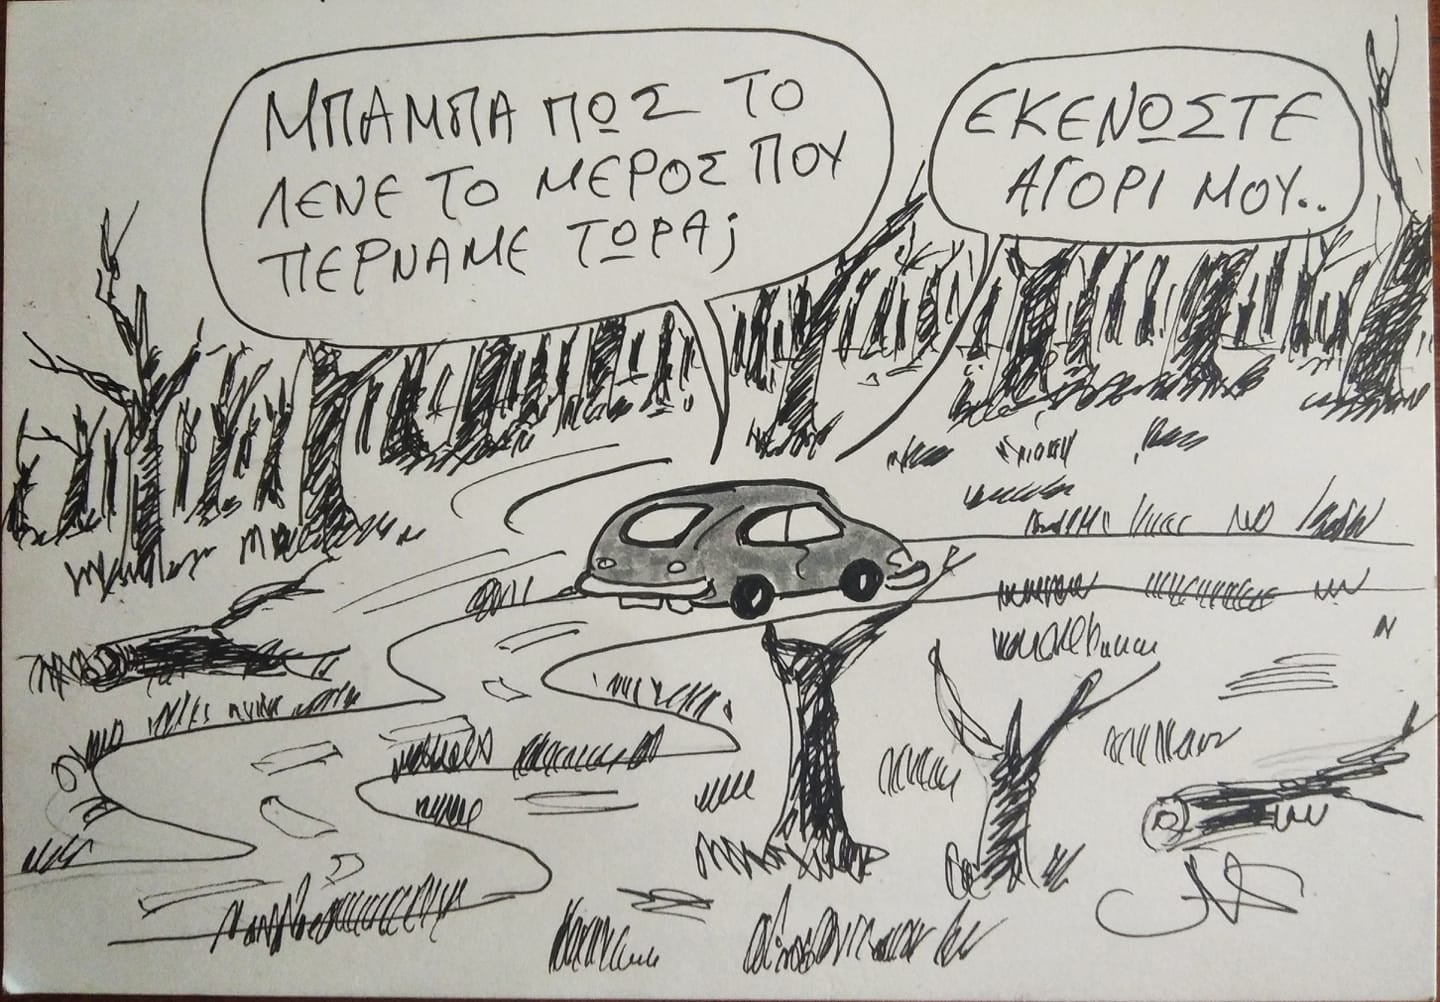 ΜΠΑΜΠΑ ΠΩΣ ΤΟ
ΛΕΝΕ ΤΟ ΜΕΡΟΣ ΠΟΥ
ΠΕΡΝΑΜΕ ΤΩΡΑ;
ΕΚΕΝΩΣΤΕ
ΑΓΟΡΙ ΜΟΥ..